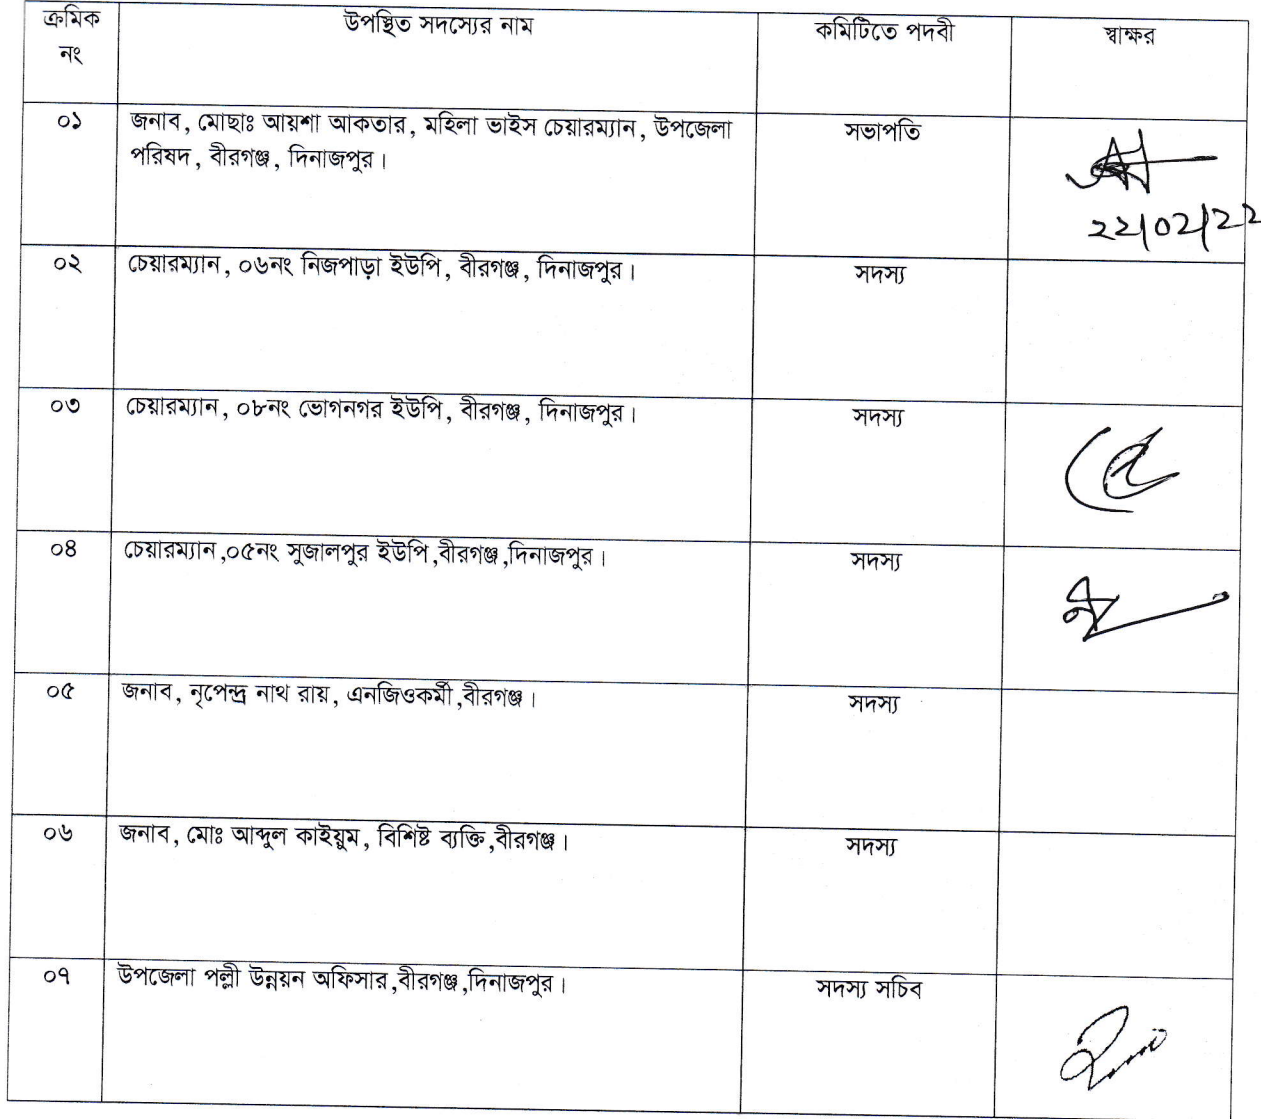 ক্রমিক নং উপস্থিত সদস্যের নাম কমিটিতে পদবী স্বাক্ষর
০১ জনাব, মোছাঃ আয়শা আকতার, মহিলা ভাইস চেয়ারম্যান, উপজেলা সভাপতি
পরিষদ, বীরগঞ্জ, দিনাজপুর।
22/02/22
০২ চেয়ারম্যান, ০৬নং নিজপাড়া ইউপি, বীরগঞ্জ, দিনাজপুর। সদস্য
০৩ চেয়ারম্যান, ০৮নং ভোগনগর ইউপি, বীরগঞ্জ, দিনাজপুর। সদস্য
০৪ চেয়ারম্যান,০৫নং সুজালপুর ইউপি,বীরগঞ্জ,দিনাজপুর। সদস্য
০৫ জনাব, নৃপেন্দ্র নাথ রায়, এনজিওকর্মী,বীরগঞ্জ। সদস্য
০৬ জনাব, মোঃ আব্দুল কাইয়ুম, বিশিষ্ট ব্যক্তি,বীরগঞ্জ। সদস্য
০৭ উপজেলা পল্লী উন্নয়ন অফিসার,বীরগঞ্জ,দিনাজপুর। সদস্য সচিব